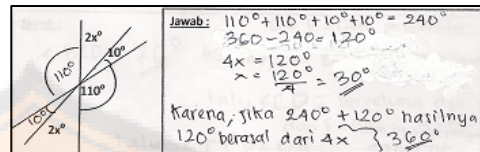 2x°
10°
110°
110°
10°
2x°
Jawab: 110° + 110° + 10° + 10° = 240°
360 - 240 = 120°
4x = 120°
x = 120°/4 = 30°
Karena, jika 240° + 120° hasilnya
120° berasal dari 4x } 360°